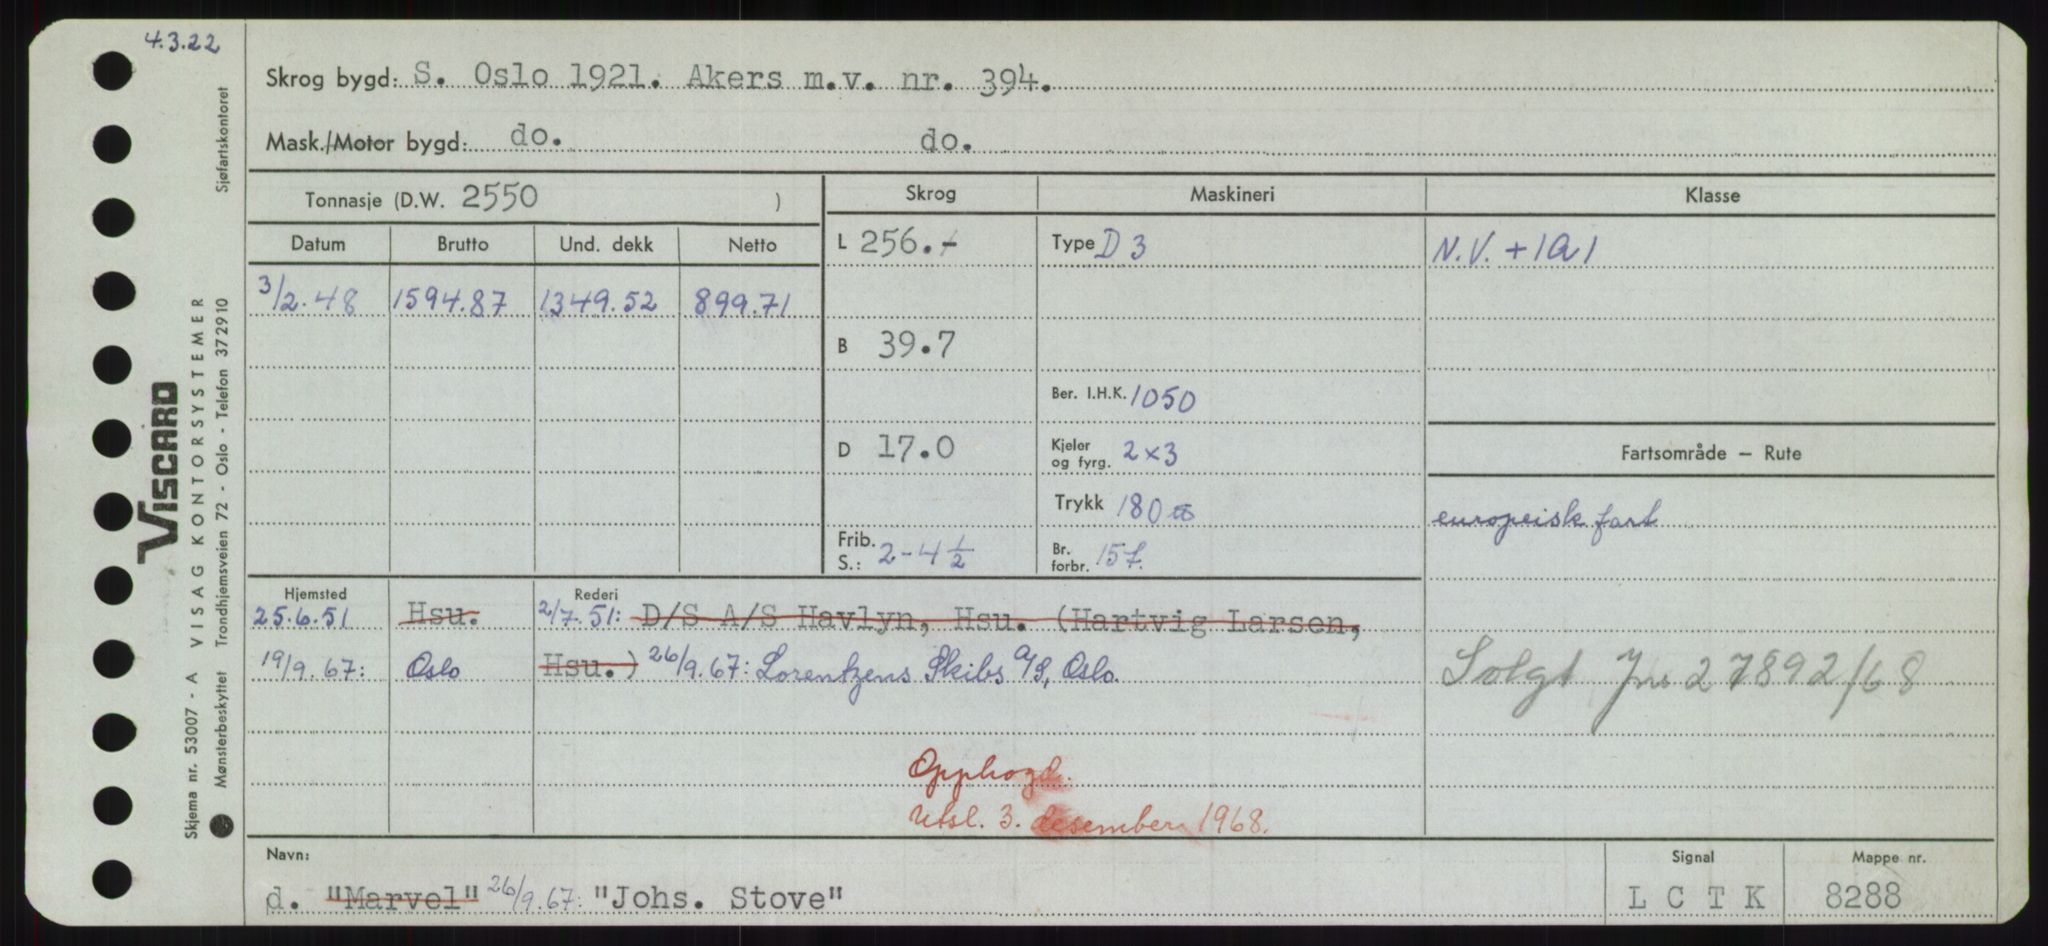 4.3.22
Skrog bygd: S. Oslo 1921. Akers m.v. nr. 394.
Mask./Motor bygd: do. do.
Tonnasje (D.W. 2550 )
Datum Brutto Und. dekk Netto
3/2.48 1594.87 1349.52 899.71
Skrog
L 256.-
B 39.7
D 17.0
Frib. S.: 2-4 1/2
Maskineri
Type D 3
Ber. I.H.K. 1050
Kjeler og fyrg. 2x3
Trykk 180
Br. forbr. 15 t.
Klasse
N.V. +1A1
Fartsområde – Rute
europeisk fart
Solgt Jnr 27892/68
Hjemsted Rederi
25.6.51 Hsu. 2/7.51: D/S A/S Havlyn, Hsu. (Hartvig Larsen,
19/9.67: Oslo Hsu.) 26/9.67: Lorentzens Skibs A/S, Oslo
Opphogd.
Utsl. 3. desember 1968.
Navn:
d. "Marvel" 26/9.67: "Johs. Stove"
Signal
L C T K
Mappe nr.
8288
VISCARD
Skjema nr. 53007 - A VISAG KONTORSYSTEMER
Mønsterbeskyttet Trondhjemsveien 72 - Oslo - Telefon 372910 Sjøfartskontoret